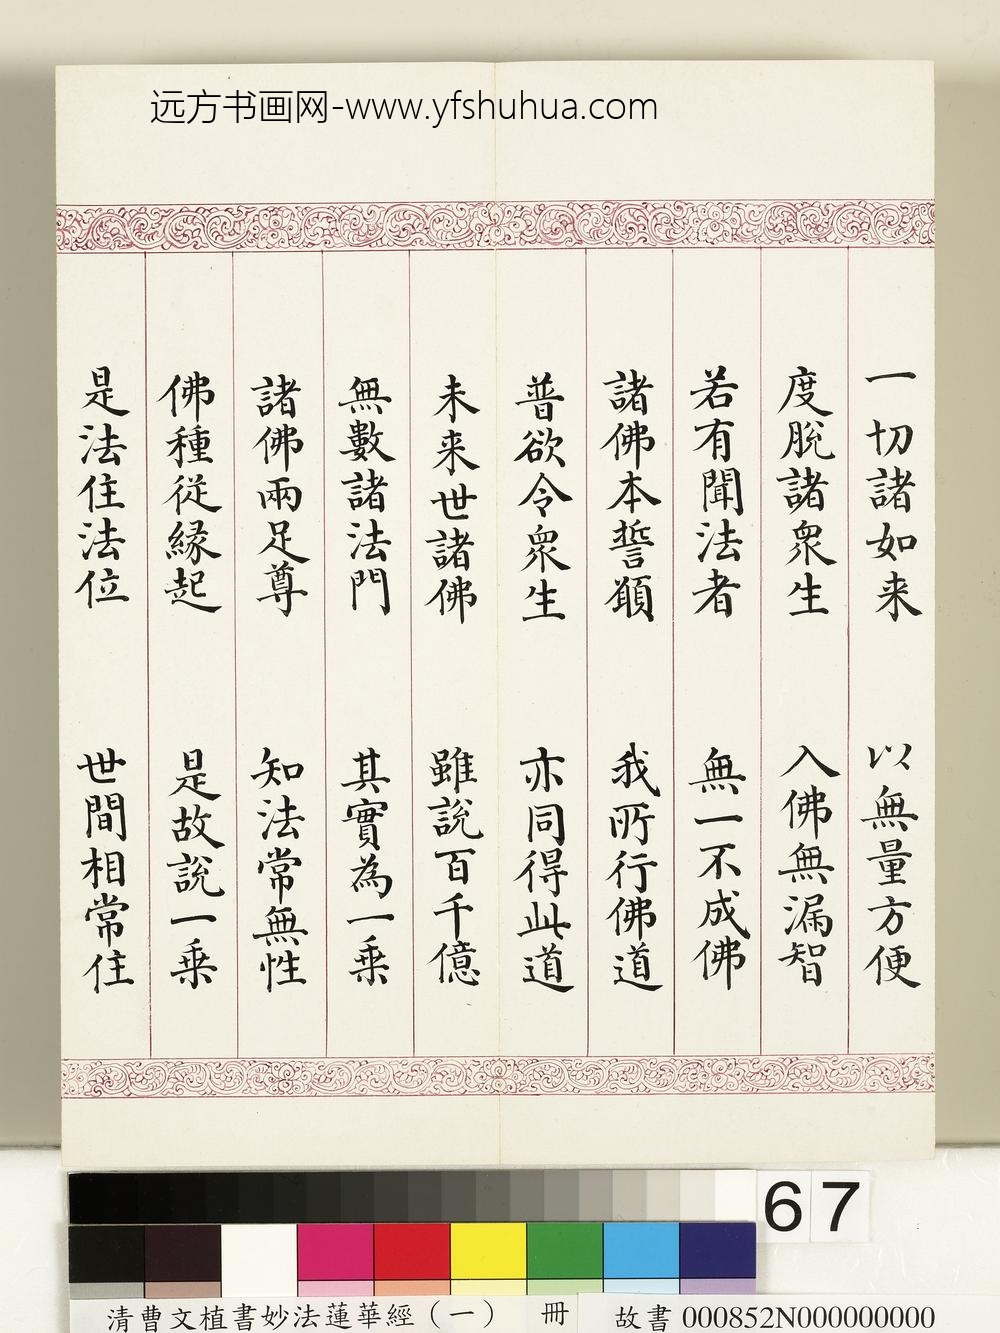 远方书画网-www.yfshuhua.com
一切諸如来 以無量方便
度脫諸衆生 入佛無漏智
若有聞法者 無一不成佛
諸佛本誓願 我所行佛道
普欲令衆生 亦同得此道
未来世諸佛 雖說百千億
無數諸法門 其實為一乗
諸佛兩足尊 知法常無性
佛種從緣起 是故說一乗
是法住法位 世間相常住
67
清曹文植書妙法蓮華經（一） 冊 故書 000852N000000000